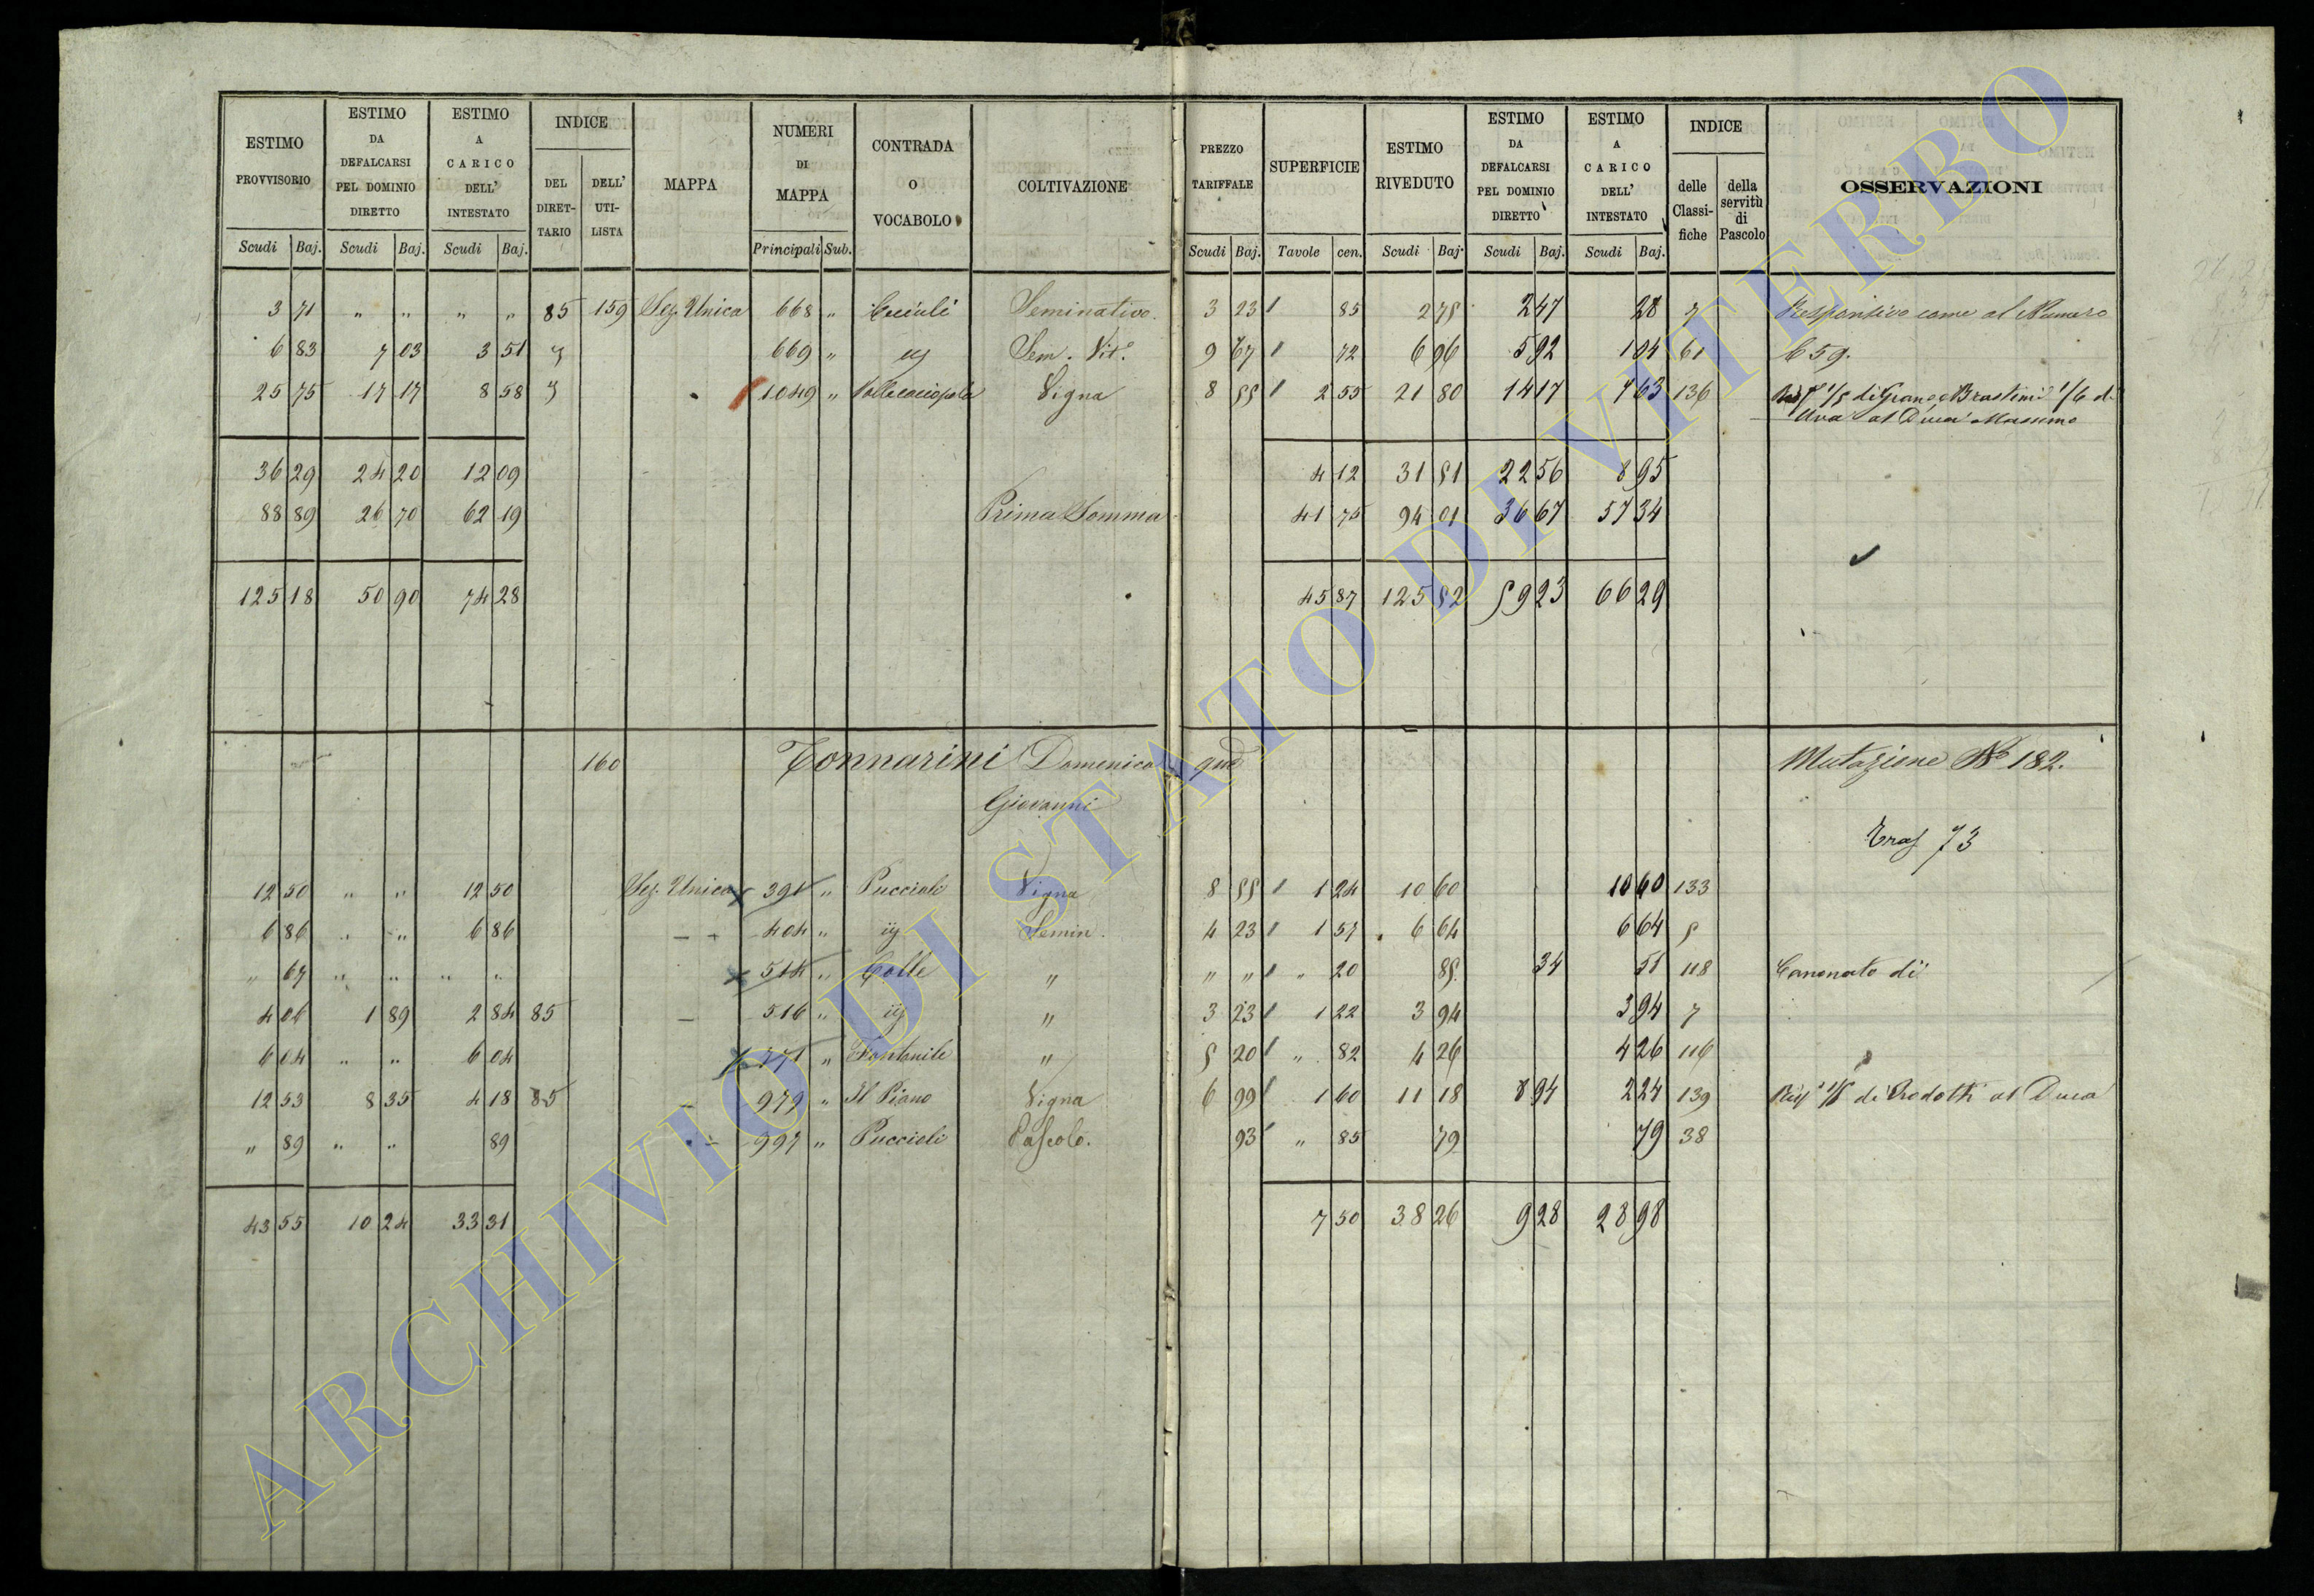 ESTIMO PROVVISORIO | ESTIMO DA DEFALCARSI PEL DOMINIO DIRETTO | ESTIMO A CARICO DELL' INTESTATO | INDICE | MAPPA | NUMERI DI MAPPA | CONTRADA O VOCABOLO | COLTIVAZIONE | PREZZO TARIFFALE | SUPERFICIE | ESTIMO RIVEDUTO | ESTIMO DA DEFALCARSI PEL DOMINIO DIRETTO | ESTIMO A CARICO DELL' INTESTATO | INDICE | OSSERVAZIONI
DEL DIRETTARIO | DELL' UTILISTA | delle Classifiche | della servitù di Pascolo
Scudi | Baj. | Scudi | Baj. | Scudi | Baj. | Principali | Sub. | Scudi | Baj. | Tavole | cen. | Scudi | Baj. | Scudi | Baj. | Scudi | Baj.
3 71 " " " " 85 159 Sez. Unica 668 " Seminativo. 3 23 85 2 75 2 47 28 7 Responsivo come al Numero
6 83 7 03 3 51 669 " Sem. Vit. 9 67 72 6 96 5 92 1 04 61 659.
25 75 17 17 8 58 1049 " Vigna 8 55 2 55 21 80 14 17 7 63 136 1/5 di Grano 1/6 di
Uva al Duca Massimo
36 29 24 20 12 09 4 12 31 51 22 56 8 95
88 89 26 70 62 19 Prima Somma 41 75 94 01 36 67 57 34
125 18 50 90 74 28 45 87 125 52 59 23 66 29
160 Tonnarini Domenico qm Mutazione No 182.
Giovanni
Tras 73
12 50 " " 12 50 Sez. Unica 391 " Puccioli Vigna 8 55 1 24 10 60 10 60 133
6 86 " " 6 86 404 " ij Semin. 4 23 1 57 6 64 6 64 5
" 67 " " " " 514 " Colle " " " " 20 85 34 51 118 Canonato di
4 06 1 89 2 84 85 516 " ij " 3 23 1 22 3 94 3 94 7
6 04 " " 6 04 771 " Fontanile " 5 20 " 82 4 26 4 26 116
12 53 8 35 4 18 85 979 " Il Piano Vigna 6 99 1 60 11 18 8 94 2 24 139 Risp 1/5 di Prodotti al Duca
" 89 " " 89 997 " Puccioli Pascolo. 93 " 85 79 79 38
43 55 10 24 33 31 7 50 38 26 9 28 28 98
ARCHIVIO DI STATO DI VITERBO